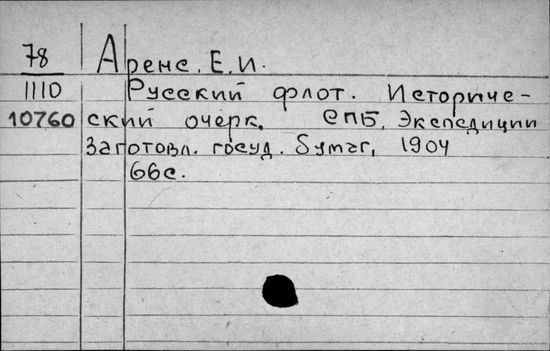 78 Аренс, Е.И.
1110 Русский флот. Историче-
10760 ский очерк, СПБ, Экспедиции
Заготовл. госуд. бумаг, 1904
66с.